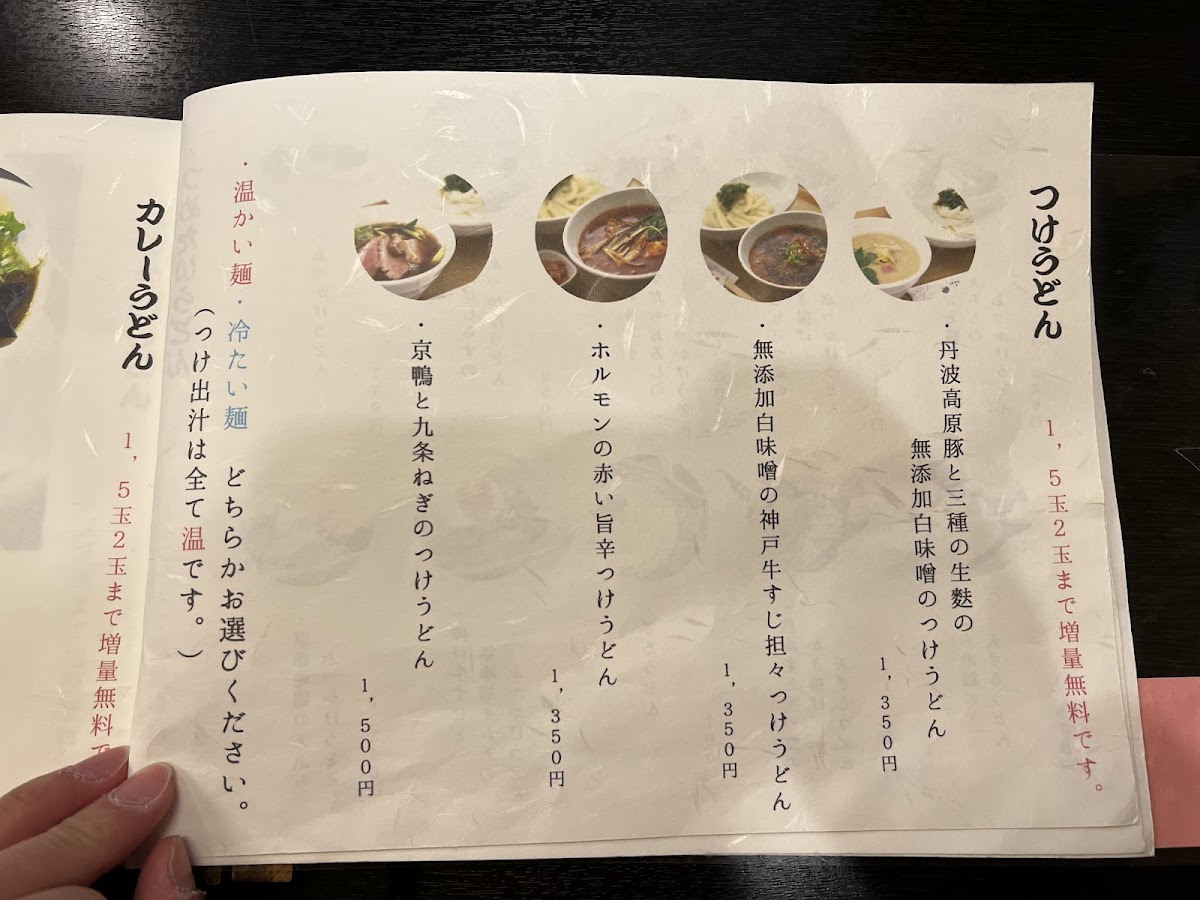 つけうどん
1,5玉2玉まで増量無料です。
・丹波高原豚と三種の生麩の
無添加白味噌のつけうどん
1,350円
・無添加白味噌の神戸牛すじ担々つけうどん
1,350円
・ホルモンの赤い旨辛つけうどん
1,350円
・京鴨と九条ねぎのつけうどん
1,500円
・温かい麺・冷たい麺 どちらかお選びください。
(つけ出汁は全て温です。)
カレーうどん
1,5玉2玉まで増量無料で